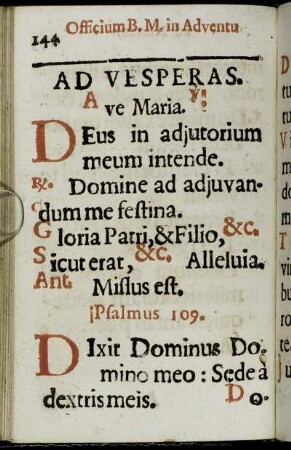 Officium B. M. in Adventu
144
AD VESPERAS.
Ave Maria. ℣:
DEus in adjutorium
meum intende.
℟. Domine ad adjuvan-
dum me festina.
Gloria Patri, & Filio, &c.
Sicut erat, &c. Alleluia.
Ant. Missus est.
Psalmus 109.
DIxit Dominus Do-
mino meo : Sede à
dextris meis. D o.